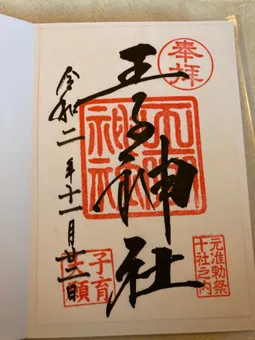 奉拝
王子神社
王子神社
元准勅祭
十社之内
令和二年十一月廿二日
子育
大願